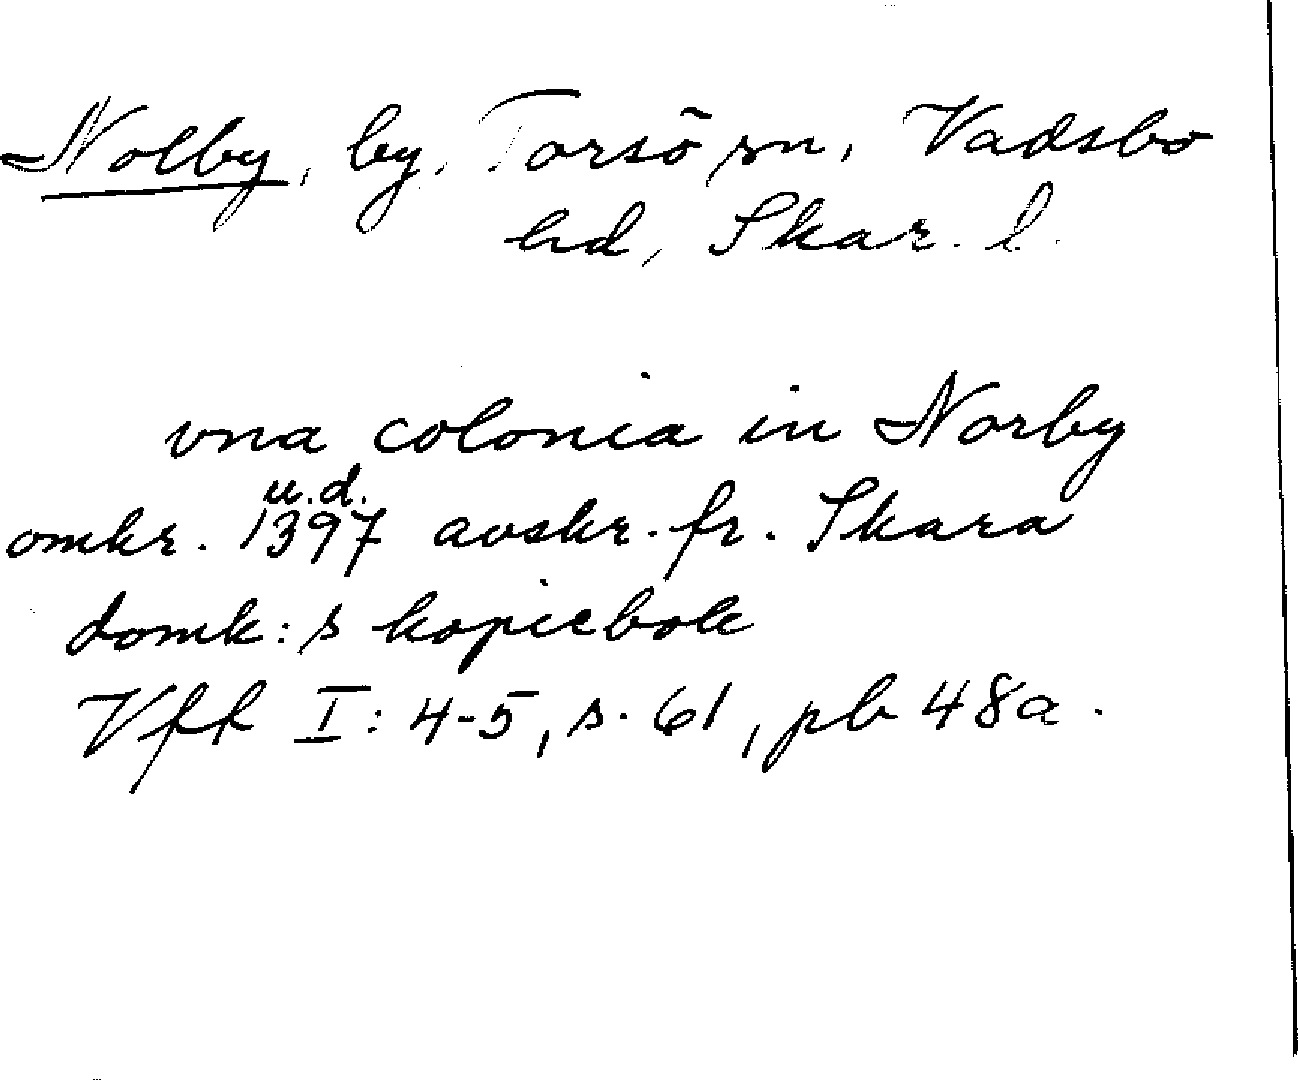 Nolby, by, Torsö sn, Vadsbo
hd, Skar. l.
vna colonia in Norby
u.d.
omkr. 1397 avskr. fr. Skara
domk:s kopiebok
Vfk I: 4-5, s. 61, pb 48a.